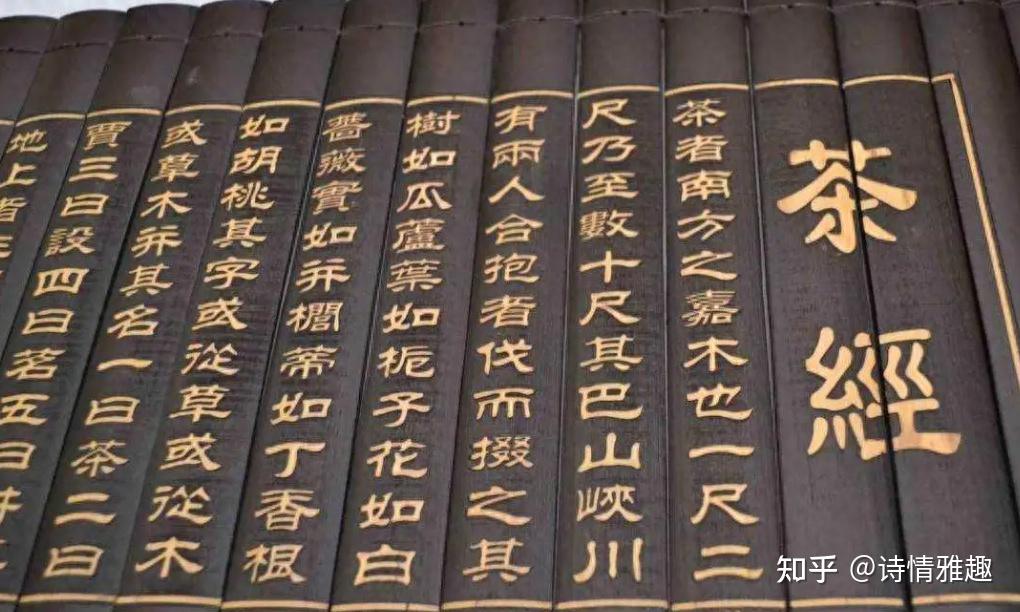 茶經
茶者南方之嘉木也一尺二
尺乃至數十尺其巴山峽川
有兩人合抱者伐而掇之其
樹如瓜蘆葉如梔子花如白
薔薇實如并櫚蒂如丁香根
如胡桃其字或從草或從木
或草木并其名一曰茶二曰
賈三曰設四曰茗五曰
地上者
知乎 @诗情雅趣